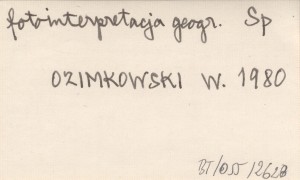 fotointerpretacja geogr. Sp
OZIMKOWSKI W. 1980
BT/055/2628